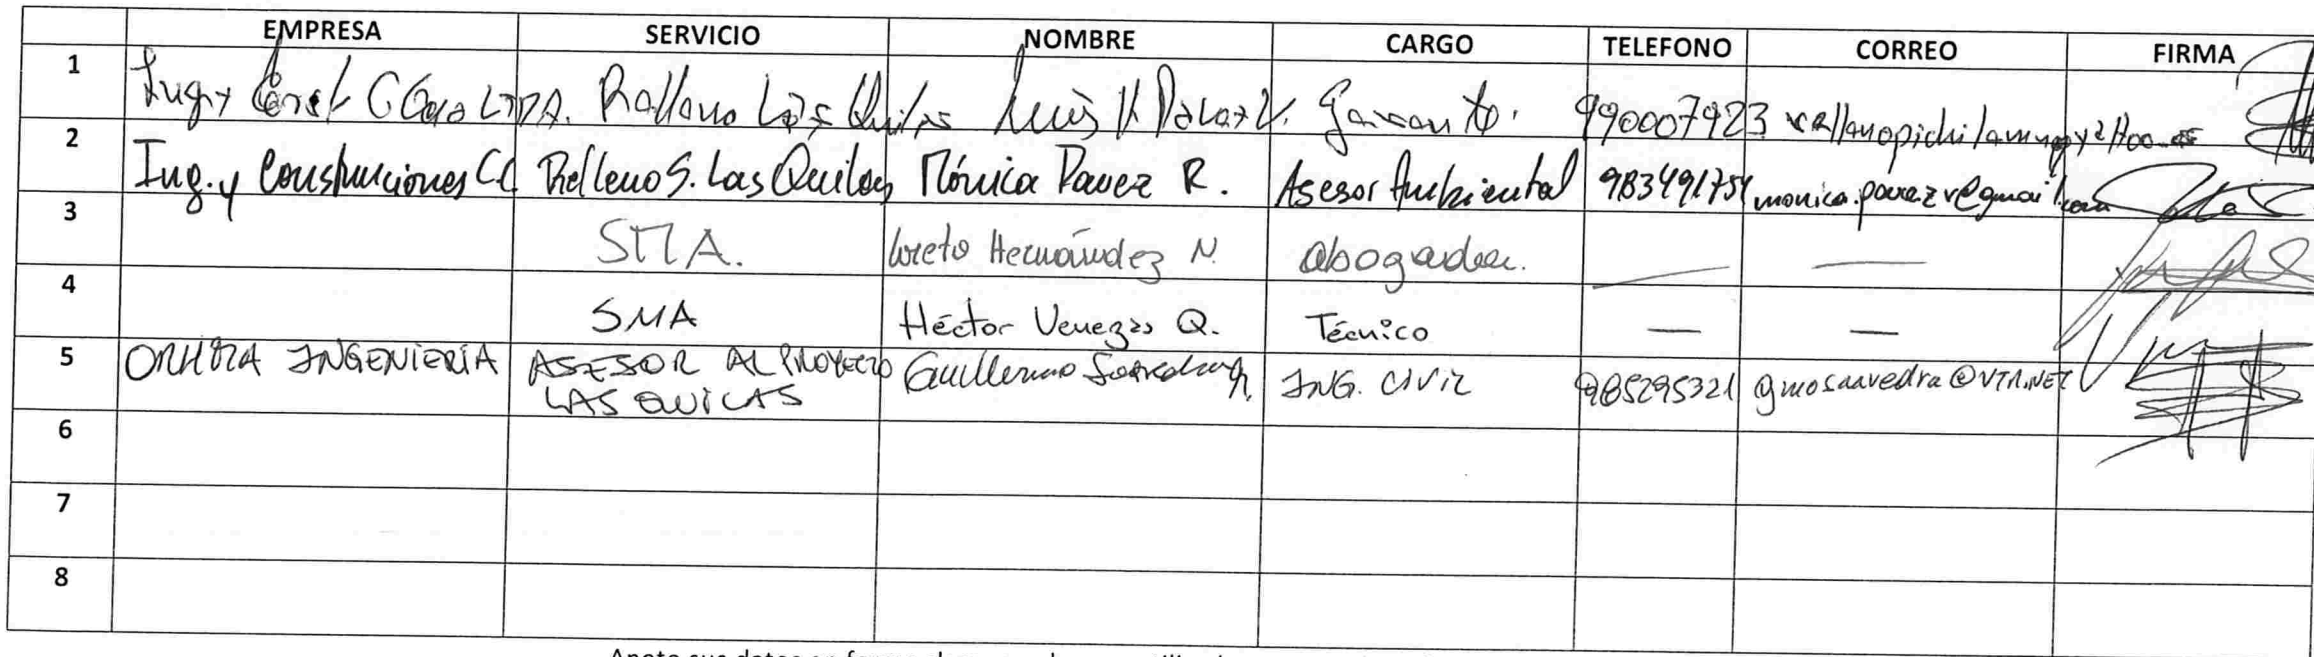 EMPRESA SERVICIO NOMBRE CARGO TELEFONO CORREO FIRMA
1 Ing. y Const. LTDA. Relleno Las Quilas Luis Gerente. 990007923
2 Ing. y Construcciones CC Relleno S. Las Quilas Mónica Pavez R. Asesor Ambiental 983491754 monica.pavezv@gmail.com
3 SMA. Loreto Hernández N. abogada. — —
4 SMA Héctor Venegas Q. Técnico — —
5 INGENIERIA ASESOR AL PROYECTO Guillermo Saavedra ING. CIVIL 985295321 gmosaavedra@VTR.NET
LAS QUILAS
6
7
8